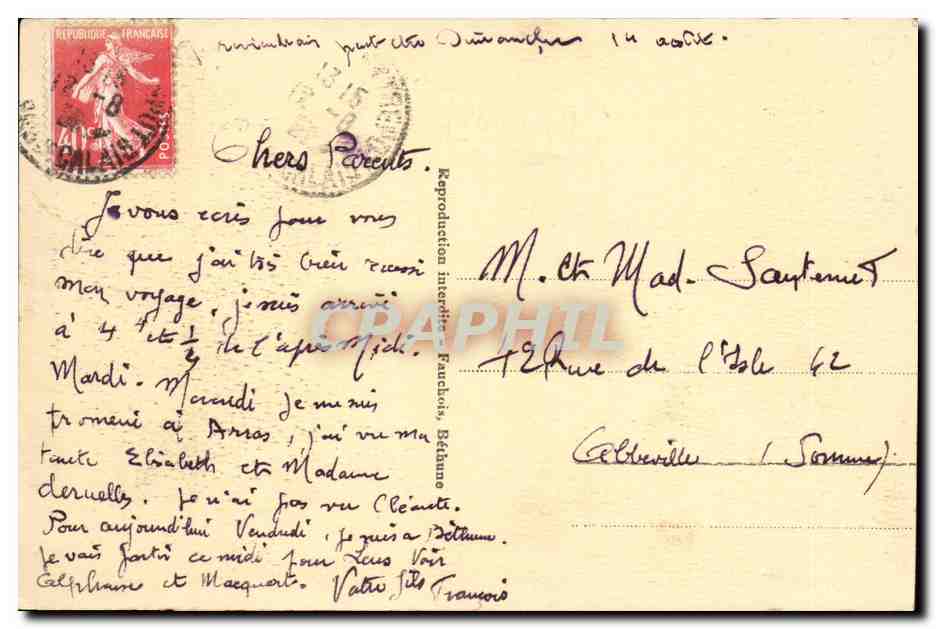 RÉPUBLIQUE FRANÇAISE
POSTES
reviendrais peut être Dimanche 14 août.
Chers Parents.
Je vous écris pour vous
dire que j'ai très bien réussi
mon voyage, je suis arrivé
à 4 h et 1/2 de l'après Midi.
Mardi. Mercredi je me suis
promené à Arras, j'ai vu ma
tante Elisabeth et Madame
deruelles. Je n'ai pas vu Cléante.
Pour aujourd'hui Vendredi, je suis à Béthune.
Je vais partir ce midi pour Lens voir
Alphonse et Macquart. Votre fils François
Reproduction interdite Fauchois, Béthune
M. et Mad. Sauternet
42 Rue de l'Isle 42
Abbeville (Somme)
CPAPHIL